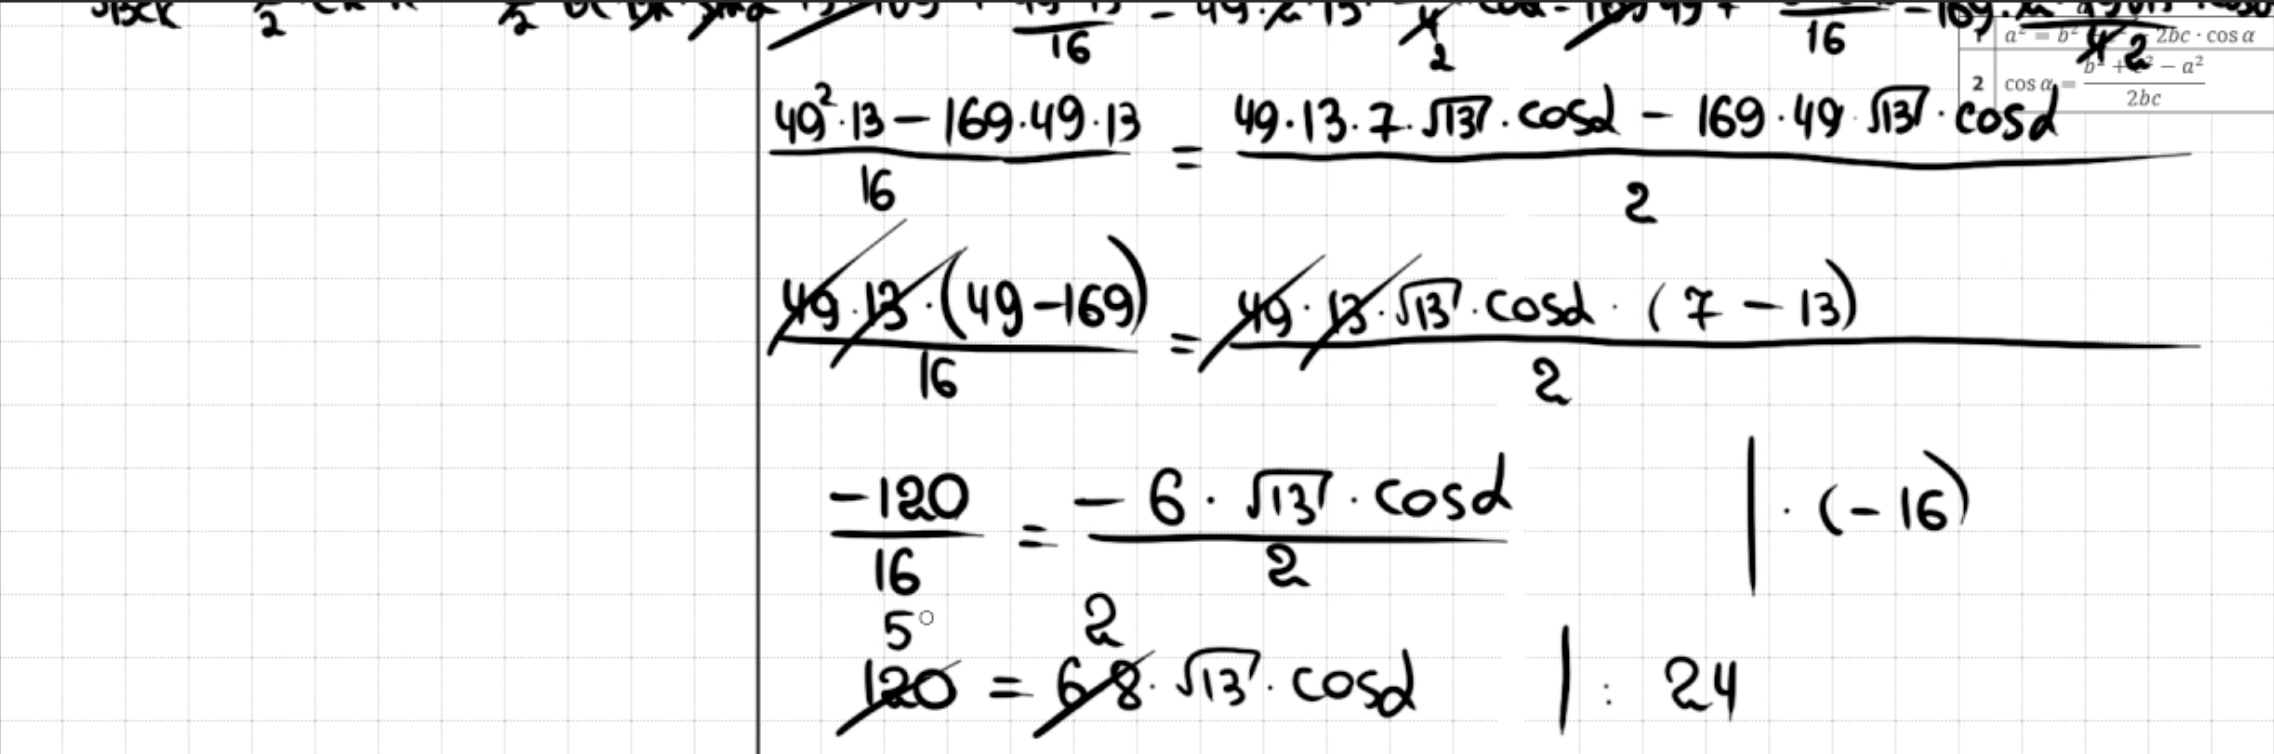 16 2 16 2
1 a² = b² 2bc · cos α
2 cos α = (b² + c² − a²)/(2bc)
(49²·13 − 169·49·13)/16 = (49·13·7·√13·cosα − 169·49·√13·cosα)/2
(49·13·(49−169))/16 = (49·13·√13·cosα·(7 − 13))/2
−120/16 = (−6·√13·cosα)/2 | ·(−16)
5 2
120 = 6·8·√13·cosα | : 24